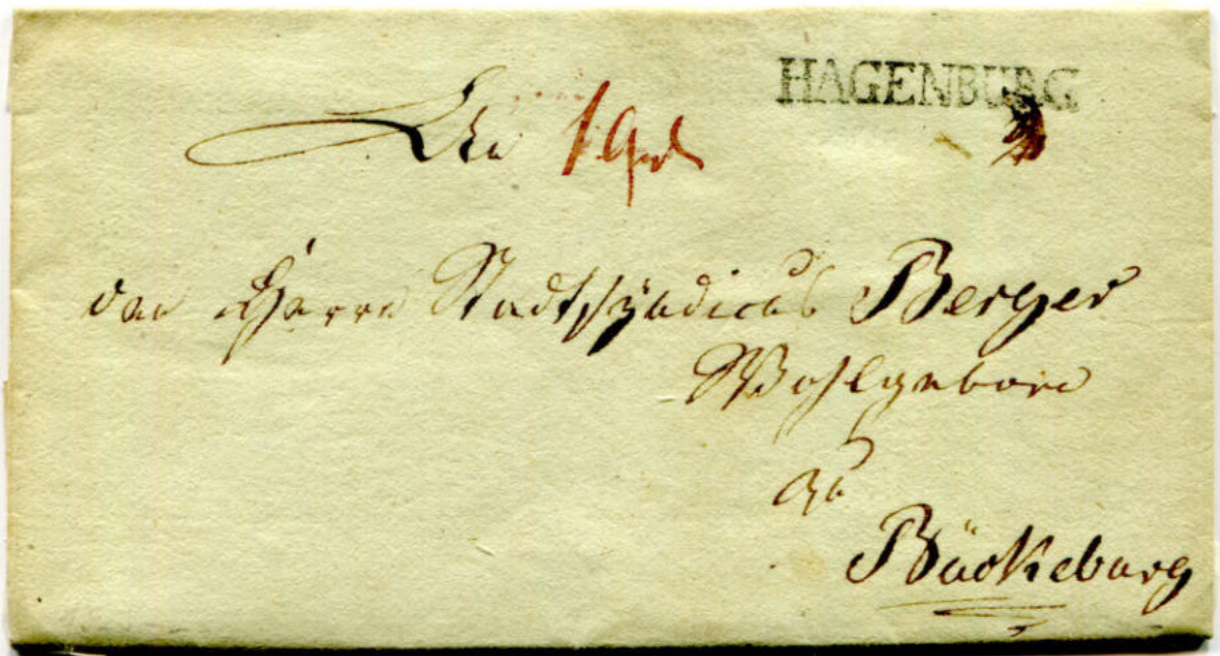 HAGENBURG
An
den Herrn Stadtsyndicus Berger
Wohlgeborn
zu
Bückeburg